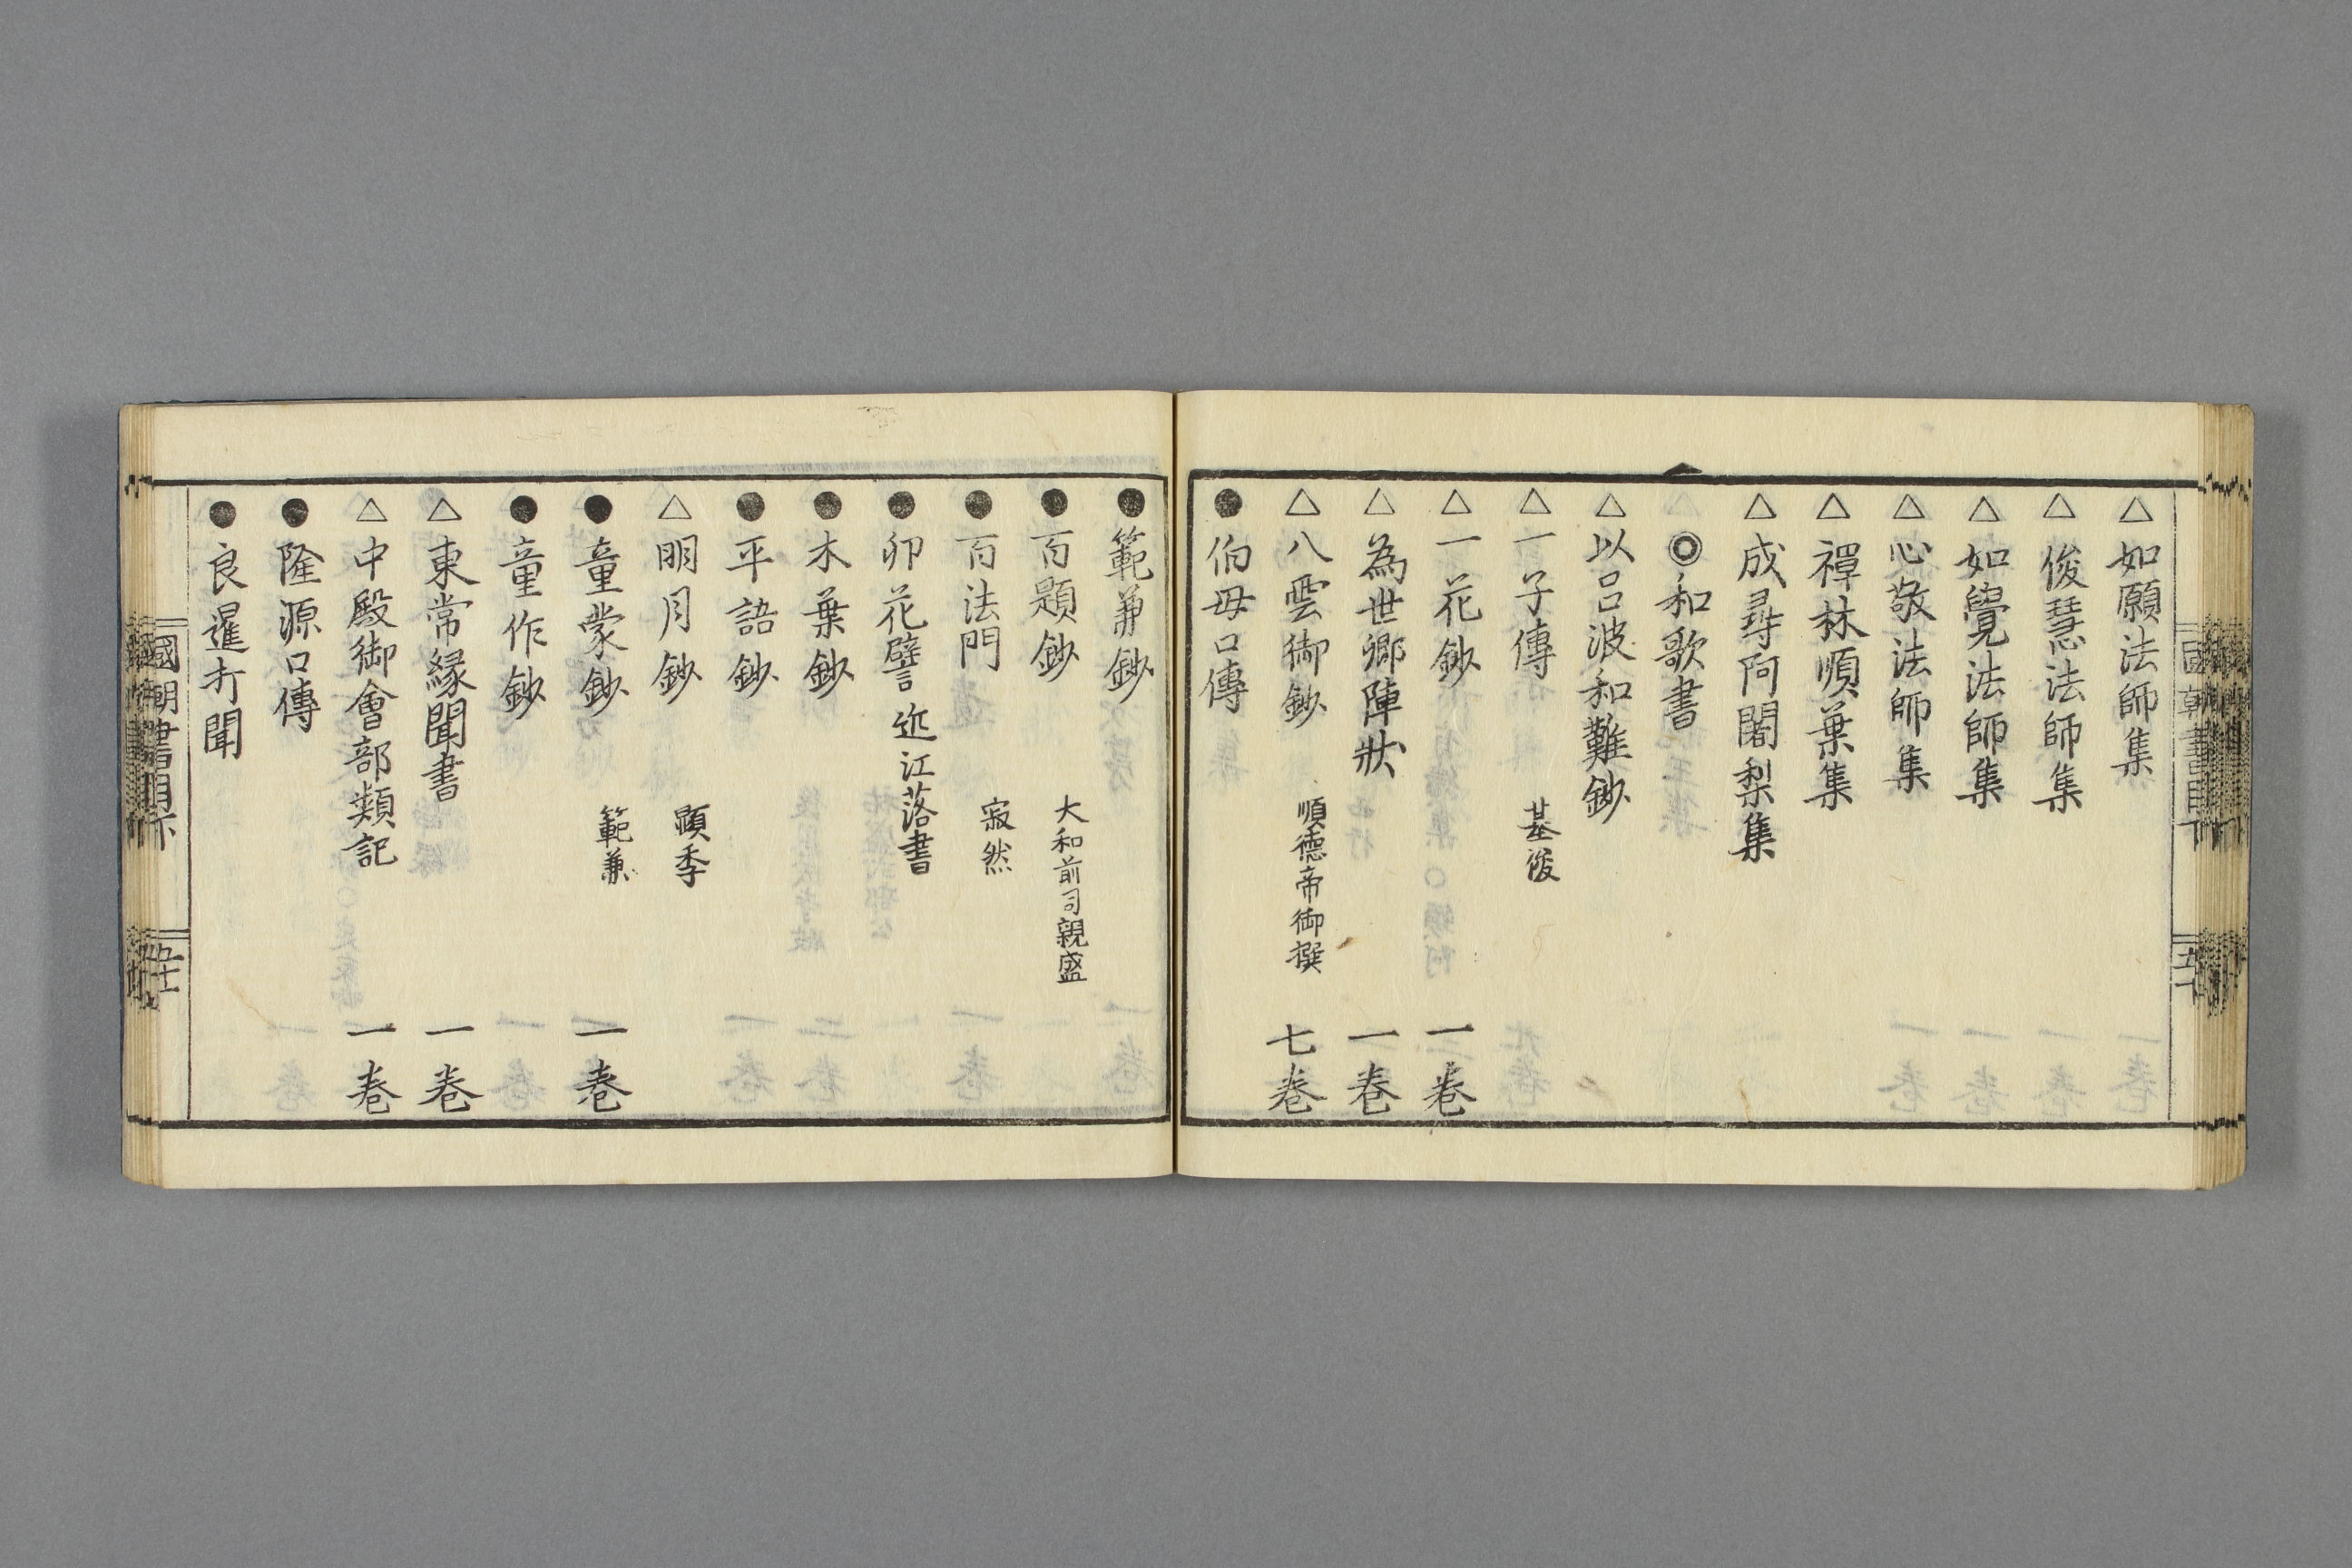 △如願法師集
△俊慧法師集
△如覺法師集
△心敬法師集
△禪林順葉集
△成尋阿闍梨集
◎和歌書
△以呂波和難鈔
△一子傳 基俊
△一花鈔 一卷
△為世卿陣狀 一卷
△八雲御鈔 順德帝御撰 七卷
●伯母口傳
●範兼鈔
●百題鈔 大和前司親盛
●百法門 寂然
●卯花譬 近江落書
●木葉鈔
●平語鈔
△明月鈔 顯季
●童蒙鈔 範兼 一卷
●童作鈔
△東常緣聞書 一卷
△中殿御會部類記 一卷
●隆源口傳
●良暹打聞
國朝書目下